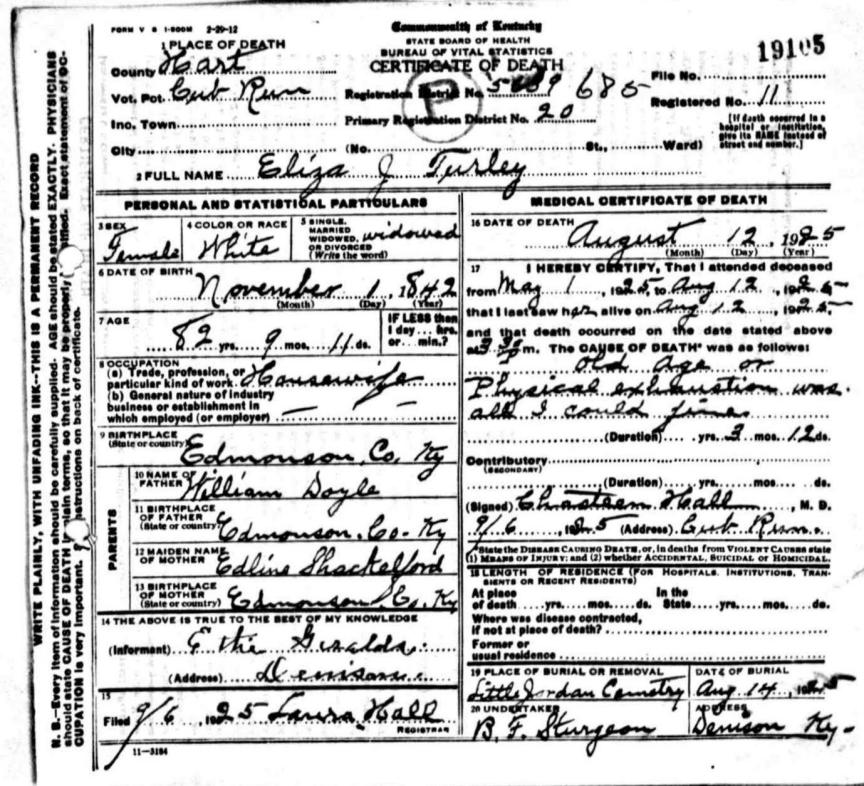 WRITE PLAINLY, WITH UNFADING INK--THIS IS A PERMANENT RECORD
N. B.--Every item of information should be carefully supplied. AGE should be stated EXACTLY. PHYSICIANS
should state CAUSE OF DEATH in plain terms, so that it may be properly classified. Exact statement of OC-
CUPATION is very important. instructions on back of certificate.
FORM V S 1-500M 2-29-12
Commonwealth of Kentucky
STATE BOARD OF HEALTH
BUREAU OF VITAL STATISTICS
CERTIFICATE OF DEATH
19105
1 PLACE OF DEATH
County Hart
Vot. Pct. Cub Run
Inc. Town
City (No. St., Ward)
Registration District No. 685
Primary Registration District No. 20
P
File No.
Registered No. 11
[If death occurred in a
hospital or institution,
give its NAME instead of
street and number.]
2 FULL NAME Eliza J Turley
PERSONAL AND STATISTICAL PARTICULARS
3 SEX
Female
4 COLOR OR RACE
White
5 SINGLE,
MARRIED
WIDOWED,
OR DIVORCED
(Write the word)
widowed
6 DATE OF BIRTH
November 1, 1842
(Month) (Day) (Year)
7 AGE
82 yrs. 9 mos. 11 ds.
IF LESS than
1 day... hrs.
or ... min.?
8 OCCUPATION
(a) Trade, profession, or
particular kind of work Housewife
(b) General nature of industry
business or establishment in
which employed (or employer)
9 BIRTHPLACE
(State or country)
Edmonson, Co, Ky
PARENTS
10 NAME OF
FATHER
William Doyle
11 BIRTHPLACE
OF FATHER
(State or country)
Edmonson, Co- Ky
12 MAIDEN NAME
OF MOTHER
Edline Shackelford
13 BIRTHPLACE
OF MOTHER
(State or country)
Edmonson, Co, Ky
14 THE ABOVE IS TRUE TO THE BEST OF MY KNOWLEDGE
(Informant)
(Address) Denison
15
Filed 9/6, 1925 Laura Hall
REGISTRAR
11-3184
MEDICAL CERTIFICATE OF DEATH
16 DATE OF DEATH
August 12, 1925
(Month) (Day) (Year)
17 I HEREBY CERTIFY, That I attended deceased
from May 1, 1925, to Aug 12, 1925
that I last saw her alive on Aug 12, 1925,
and that death occurred on the date stated above
at m. The CAUSE OF DEATH* was as follows:
Old Age or
Physical exhaustion was
all I could find
(Duration) yrs. 3 mos. 12 ds.
Contributory
(SECONDARY)
(Duration) yrs. mos. ds.
(Signed) Chasteen Hall, M. D.
9/6 1925 (Address) Cub Run
*State the DISEASE CAUSING DEATH, or, in deaths from VIOLENT CAUSES state
(1) MEANS OF INJURY; and (2) whether ACCIDENTAL, SUICIDAL or HOMICIDAL.
18 LENGTH OF RESIDENCE (FOR HOSPITALS, INSTITUTIONS, TRAN-
SIENTS OR RECENT RESIDENTS)
At place In the
of death yrs. mos. ds. State yrs. mos. ds.
Where was disease contracted,
if not at place of death?
Former or
usual residence
19 PLACE OF BURIAL OR REMOVAL
Little Jordan Cemetry
DATE OF BURIAL
Aug 14, 1925
20 UNDERTAKER
B. F. Sturgeon
ADDRESS
Denison Ky-